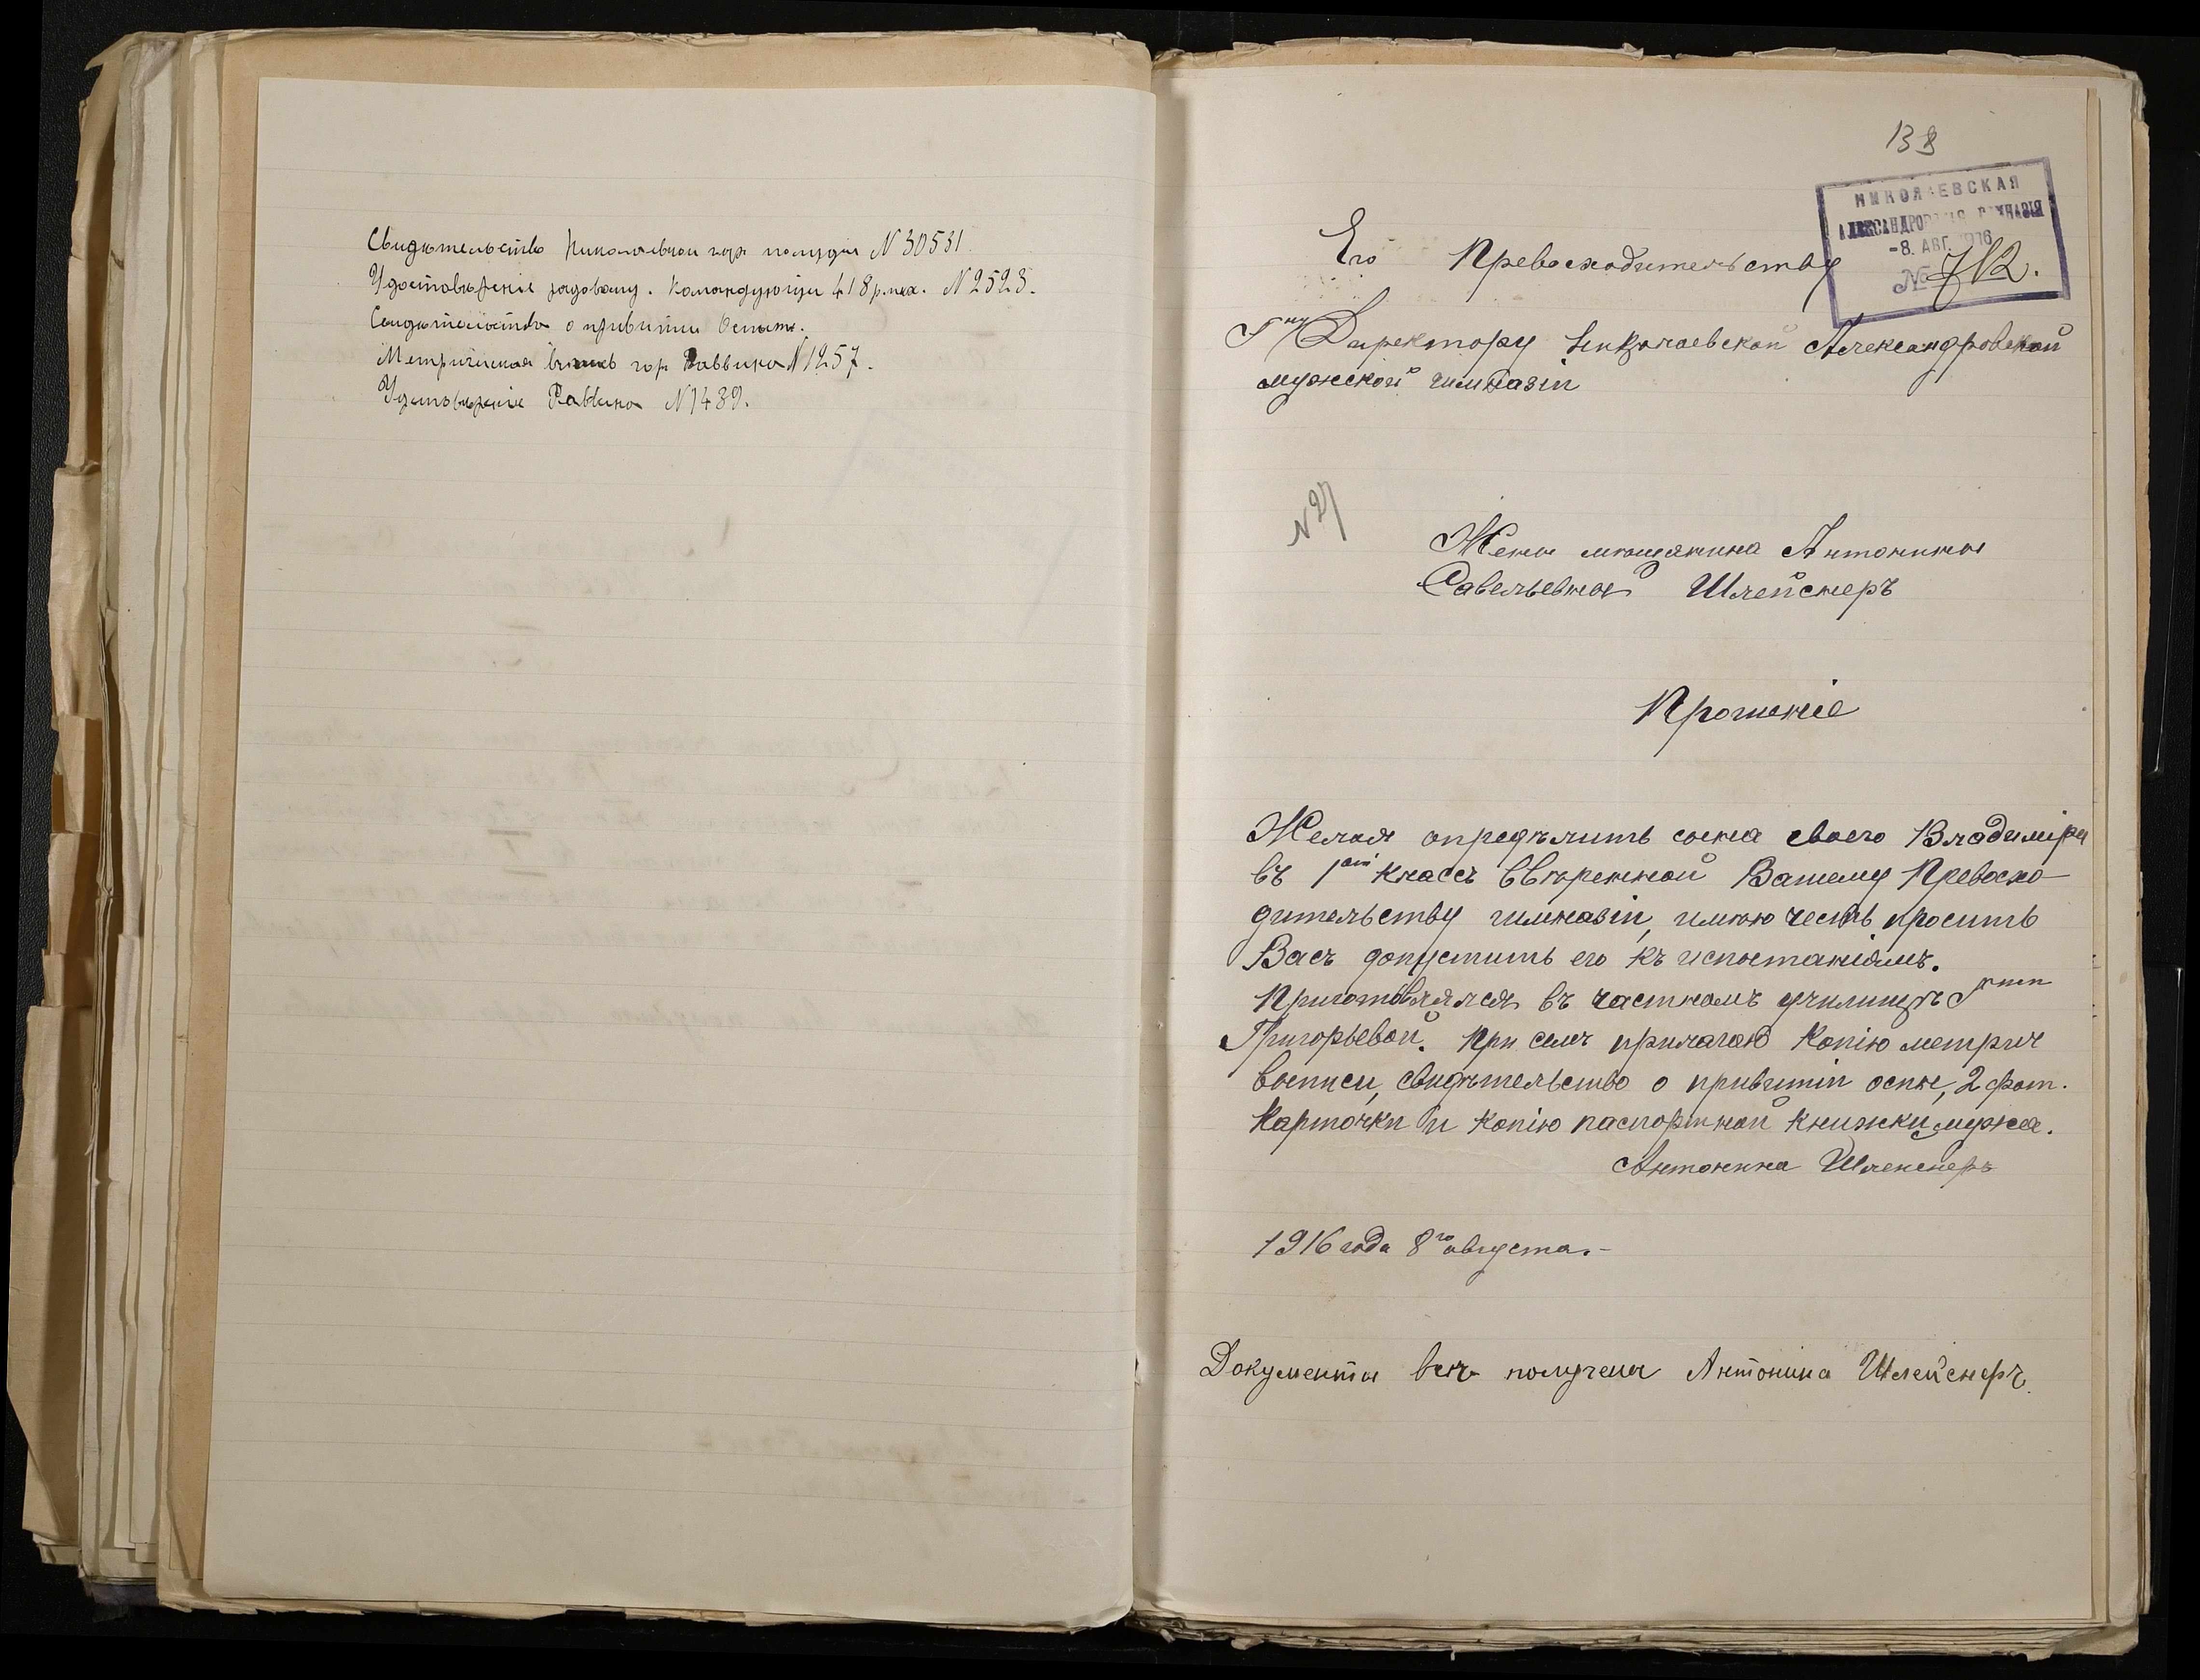 Свидѣтельство Николаевской гор. полиціи N 30531
Удостовѣреніе рядовому. Командующій 418 р. N 2523.
Свидѣтельство о привитіи Оспы.
Метрическая выпись гор. Раввина N 1257.
Удостовѣреніе Раввина N 1489.
138
НИКОЛАЕВСКАЯ
АЛЕКСАНДРОВСКАЯ ГИМНАЗІЯ
-8. АВГ. 1916
№ 712.
Его Превосходительству
Гну Директору Николаевской Александровской
мужской гимназіи
N 27
Жены мѣщанина Антонины
Савельевной Шлейснеръ
Прошеніе
Желая опредѣлить сына своего Владиміра
въ 1ый классъ ввѣренной Вашему Превосхо-
дительству гимназіи, имѣю честь просить
Васъ допустить его къ испытаніямъ.
Приготовлялся въ частномъ училищѣ Гжи
Григорьевой. При семъ прилагаю копію метрич
выписи, свидѣтельство о привитіи оспы, 2 фот.
карточки и копію паспортной книжки мужа.
Антонина Шлейснеръ
1916 года 8го августа.-
Документы всѣ получены Антонина Шлейснеръ.